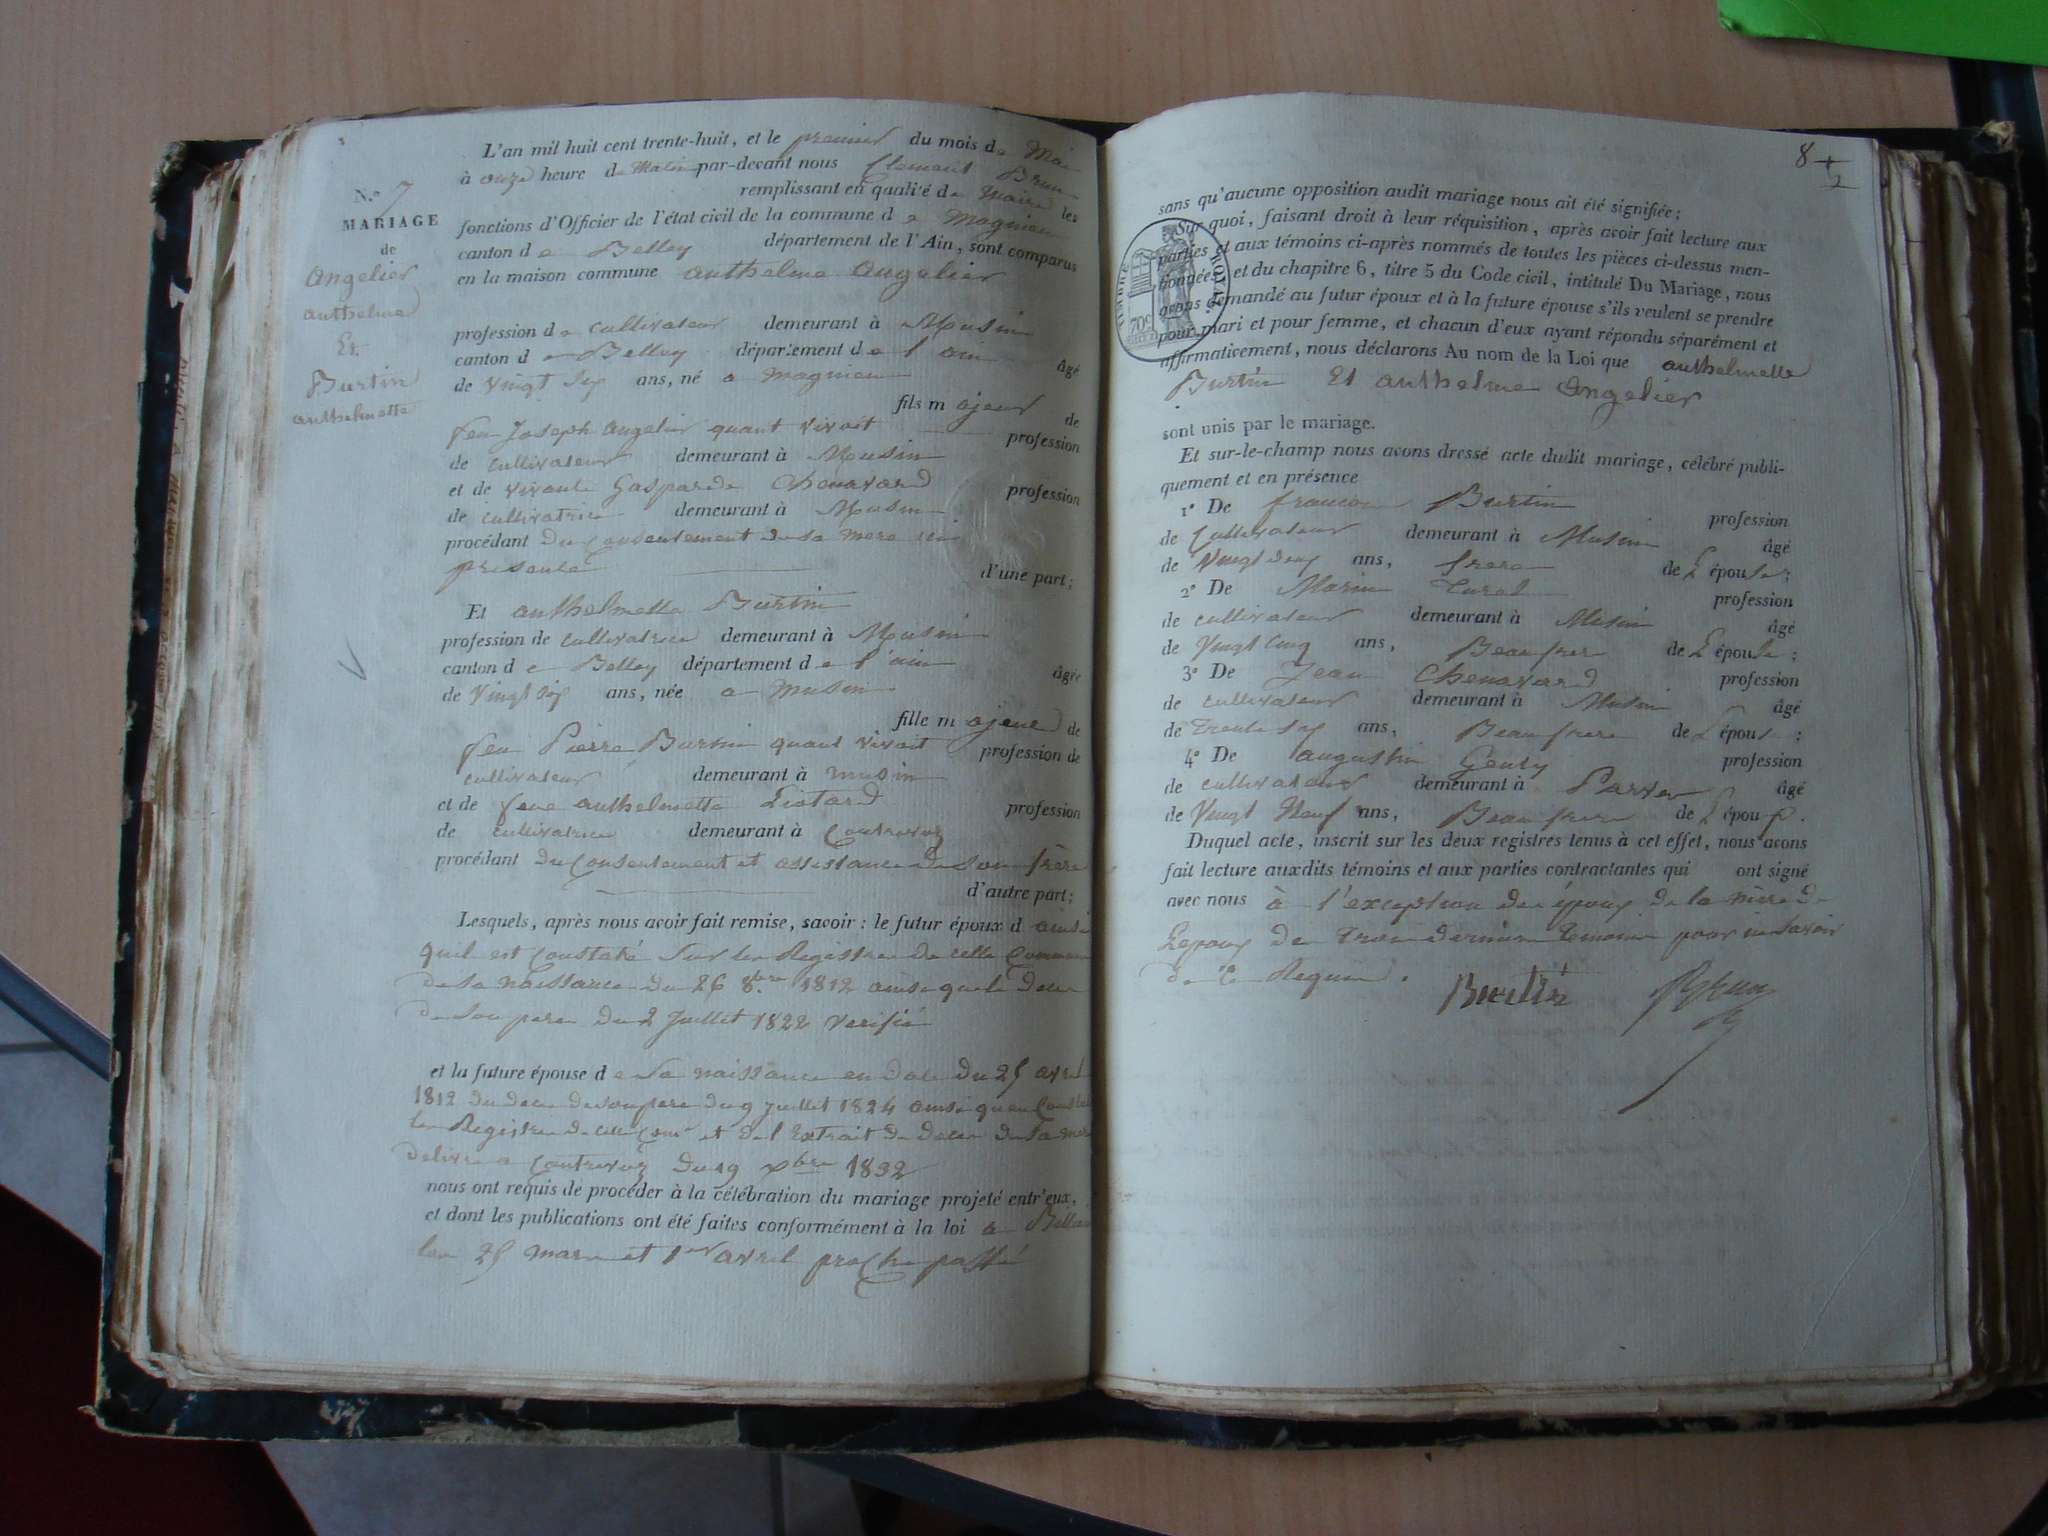 N.º 7
MARIAGE
de
Angelier
anthelme
Et
Burtin
anthelmette
L'an mil huit cent trente-huit, et le premier du mois de Mai
à onze heure de Matin par-devant nous Clement Brun
remplissant en qualité de Maire les
fonctions d'Officier de l'état civil de la commune de Magnieu
canton de Belley département de l'Ain, sont comparus
en la maison commune anthelme Angelier
profession de cultivateur demeurant à Musin
canton de Belley département de l'ain
âgé
de vingt six ans, né a magnieu
fils majeur de
feu Joseph Angelier quant vivait profession
de cultivateur demeurant à Musin
et de vivante Gasparde Chenavard profession
de cultivatrice demeurant à Musin
procédant du Consentement de sa mere ici
presente d'une part;
Et anthelmette Burtin
profession de cultivatrice demeurant à Musin
canton de Belley département de l'ain
âgée
de Vingt six ans, née a musin
fille majeure de
feu Pierre Burtin quant vivait profession de
cultivateur demeurant à musin
et de feue anthelmette Liotard profession
de cultivatrice demeurant à Contrevoz
procédant du Consentement et assistance de son frère
d'autre part;
Lesquels, après nous avoir fait remise, savoir: le futur époux d ainsi
quil est Constaté Sur les Registres de cette Commune
de sa naissance du 26 8.bre 1812 ainsi que le deces
de son pere du 2 Juillet 1822 verifié
et la future épouse de sa naissance en date du 25 avril
1812 du deces de son pere du 9 juillet 1824 ainsi quen
les Registres de cette Com.e et de l'Extrait de deces de sa mere
delivré a Contrevoz du 19 xbre 1832
nous ont requis de procéder à la célébration du mariage projeté entr'eux,
et dont les publications ont été faites conformément à la loi
les 25 mars et 1er avril proche passé
8
2
TIMBRE ROYAL
70c
sans qu'aucune opposition audit mariage nous ait été signifiée;
Sur quoi, faisant droit à leur réquisition, après avoir fait lecture aux
parties et aux témoins ci-après nommés de toutes les pièces ci-dessus men-
tionnées, et du chapitre 6, titre 5 du Code civil, intitulé Du Mariage, nous
avons demandé au futur époux et à la future épouse s'ils veulent se prendre
pour mari et pour femme, et chacun d'eux ayant répondu séparément et
affirmativement, nous déclarons Au nom de la Loi que anthelmette
Burtin Et anthelme Angelier
sont unis par le mariage.
Et sur-le-champ nous avons dressé acte dudit mariage, célébré publi-
quement et en présence
1º De francois Burtin
profession
de Cultivateur demeurant à Musin
âgé
de Vingt deux ans, frere de L'épouse;
2º De Marin
profession
de cultivateur demeurant à Musin
âgé
de Vingt Cinq ans, Beaufrere de L'épouse;
3º De Jean Chenavard
profession
de cultivateur demeurant à Musin
âgé
de Trente six ans, Beaufrere de L'épouse;
4º De augustin Genty
profession
de cultivateur demeurant à Parves
âgé
de Vingt Neuf ans, Beaufrere de L'époux.
Duquel acte, inscrit sur les deux registres tenus à cet effet, nous avons
fait lecture auxdits témoins et aux parties contractantes qui ont signé
avec nous à l'exception des époux de la mère de
Lepoux des trois derniers temoins pour ne savoir
de ce Requis.
Burtin Brun